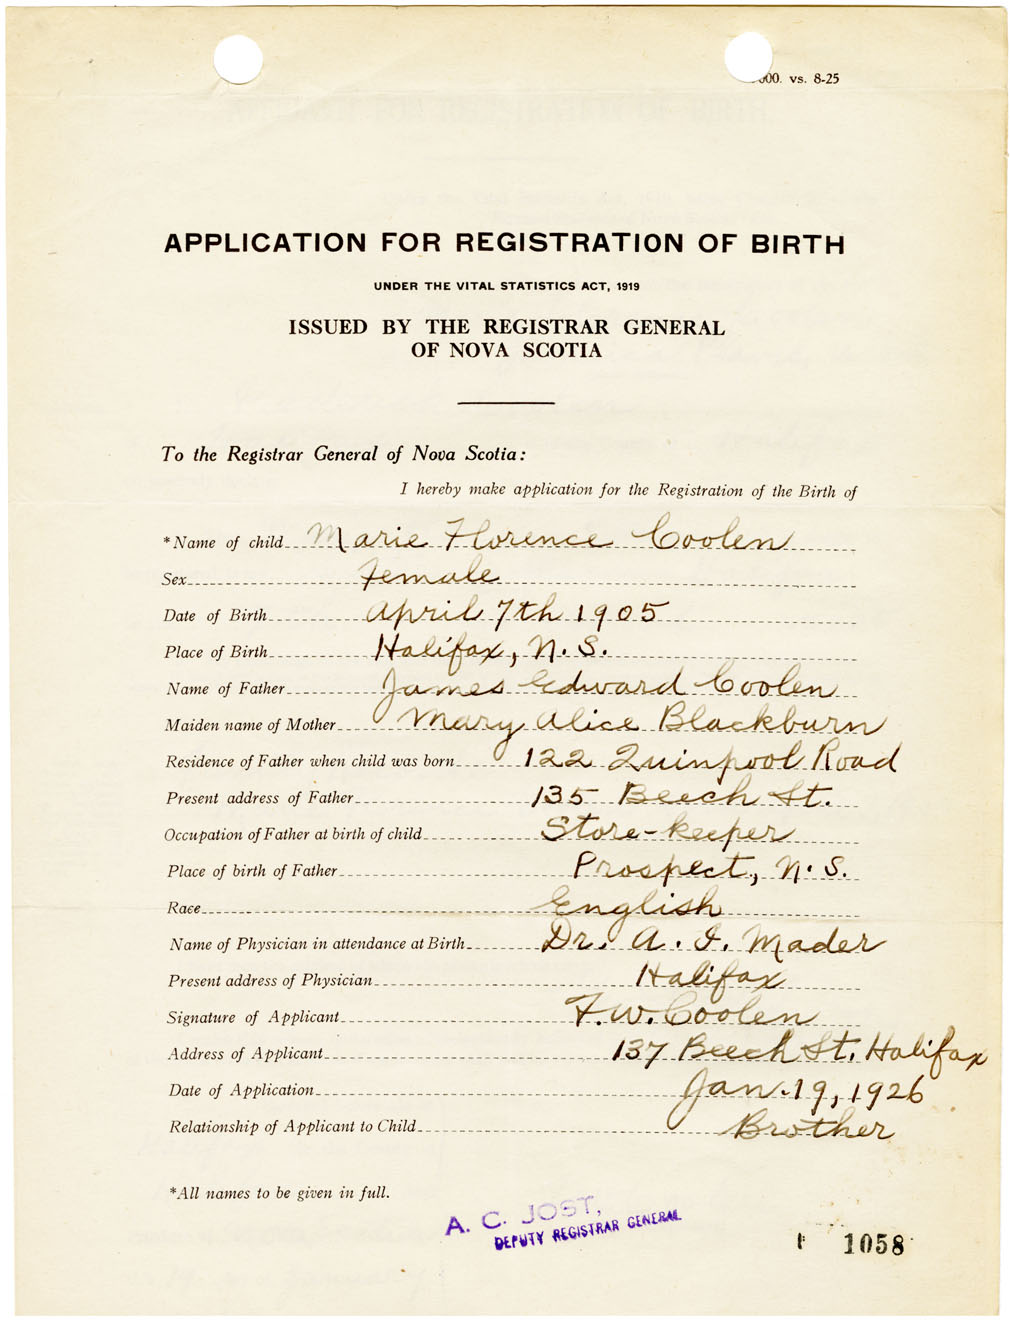 000. vs. 8-25
APPLICATION FOR REGISTRATION OF BIRTH
UNDER THE VITAL STATISTICS ACT, 1919
ISSUED BY THE REGISTRAR GENERAL
OF NOVA SCOTIA
To the Registrar General of Nova Scotia:
I hereby make application for the Registration of the Birth of
*Name of child Marie Florence Coolen
Sex Female
Date of Birth April 7th 1905
Place of Birth Halifax, N.S.
Name of Father James Edward Coolen
Maiden name of Mother Mary Alice Blackburn
Residence of Father when child was born 122 Quinpool Road
Present address of Father 135 Beech St.
Occupation of Father at birth of child Store-keeper
Place of birth of Father Prospect, N.S.
Race English
Name of Physician in attendance at Birth Dr. A. I. Mader
Present address of Physician Halifax
Signature of Applicant F.W. Coolen
Address of Applicant 137 Beech St. Halifax
Date of Application Jan. 19, 1926
Relationship of Applicant to Child Brother
*All names to be given in full.
A. C. JOST,
DEPUTY REGISTRAR GENERAL
1058